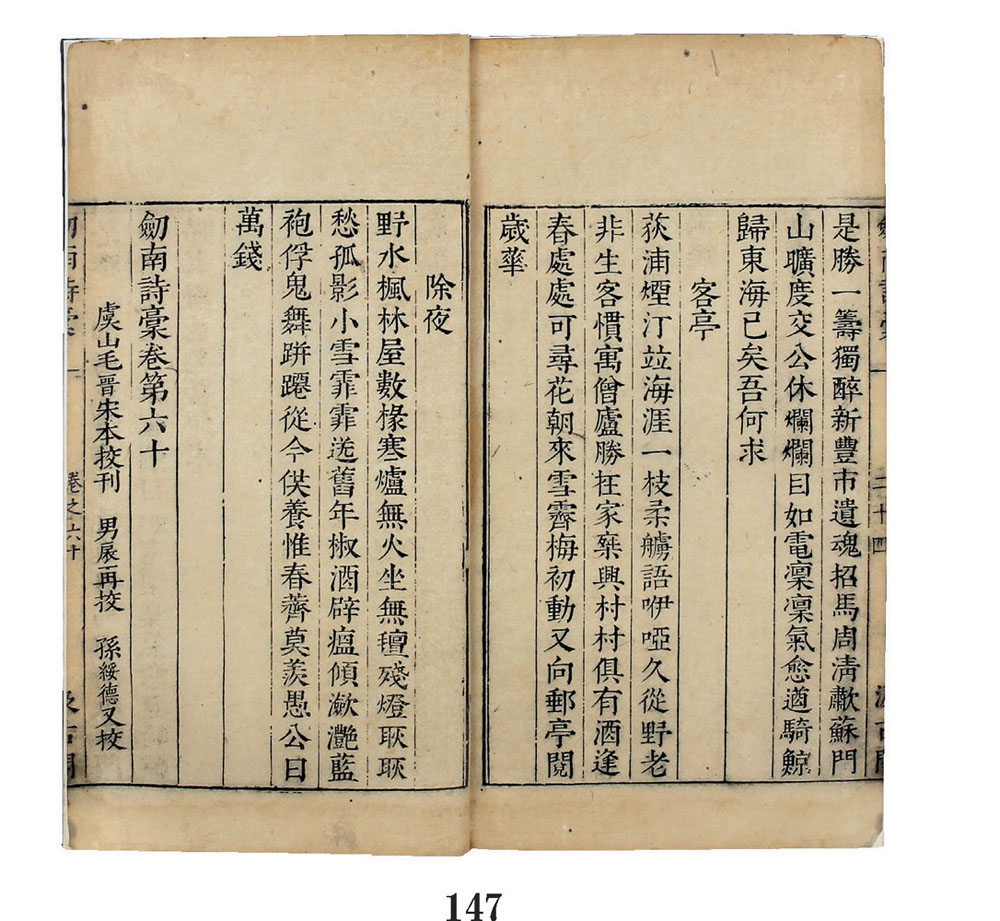 是勝一籌獨醉新豐市遺魂招馬周清歗蘇門
山曠度交公休爛爛目如電凜凜氣愈遒騎鯨
歸東海已矣吾何求
客亭
荻浦煙汀竝海涯一枝柔艣語咿啞久從野老
非生客慣寓僧廬勝在家乘興村村俱有酒逢
春處處可尋花朝來雪霽梅初動又向郵亭閱
歲華
二十四
除夜
野水楓林屋數椽寒爐無火坐無氊殘燈耿耿
愁孤影小雪霏霏送舊年椒酒辟瘟傾瀲灧藍
袍俘鬼舞跰躚從今供養惟春薺莫羨愚公日
萬錢
劒南詩稾卷第六十
虞山毛晉宋本挍刊 男扆再挍 孫綏德又挍
卷之六十
147